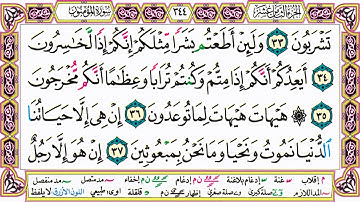 الجزء الثامن عشر ٣٤٤ سورة المؤمنون
تَشْرَبُونَ ٣٣ وَلَئِنْ أَطَعْتُم بَشَرًا مِّثْلَكُمْ إِنَّكُمْ إِذًا لَّخَاسِرُونَ
٣٤ أَيَعِدُكُمْ أَنَّكُمْ إِذَا مِتُّمْ وَكُنتُمْ تُرَابًا وَعِظَامًا أَنَّكُم مُّخْرَجُونَ
٣٥ هَيْهَاتَ هَيْهَاتَ لِمَا تُوعَدُونَ ٣٦ إِنْ هِيَ إِلَّا حَيَاتُنَا
الدُّنْيَا نَمُوتُ وَنَحْيَا وَمَا نَحْنُ بِمَبْعُوثِينَ ٣٧ إِنْ هُوَ إِلَّا رَجُلٌ